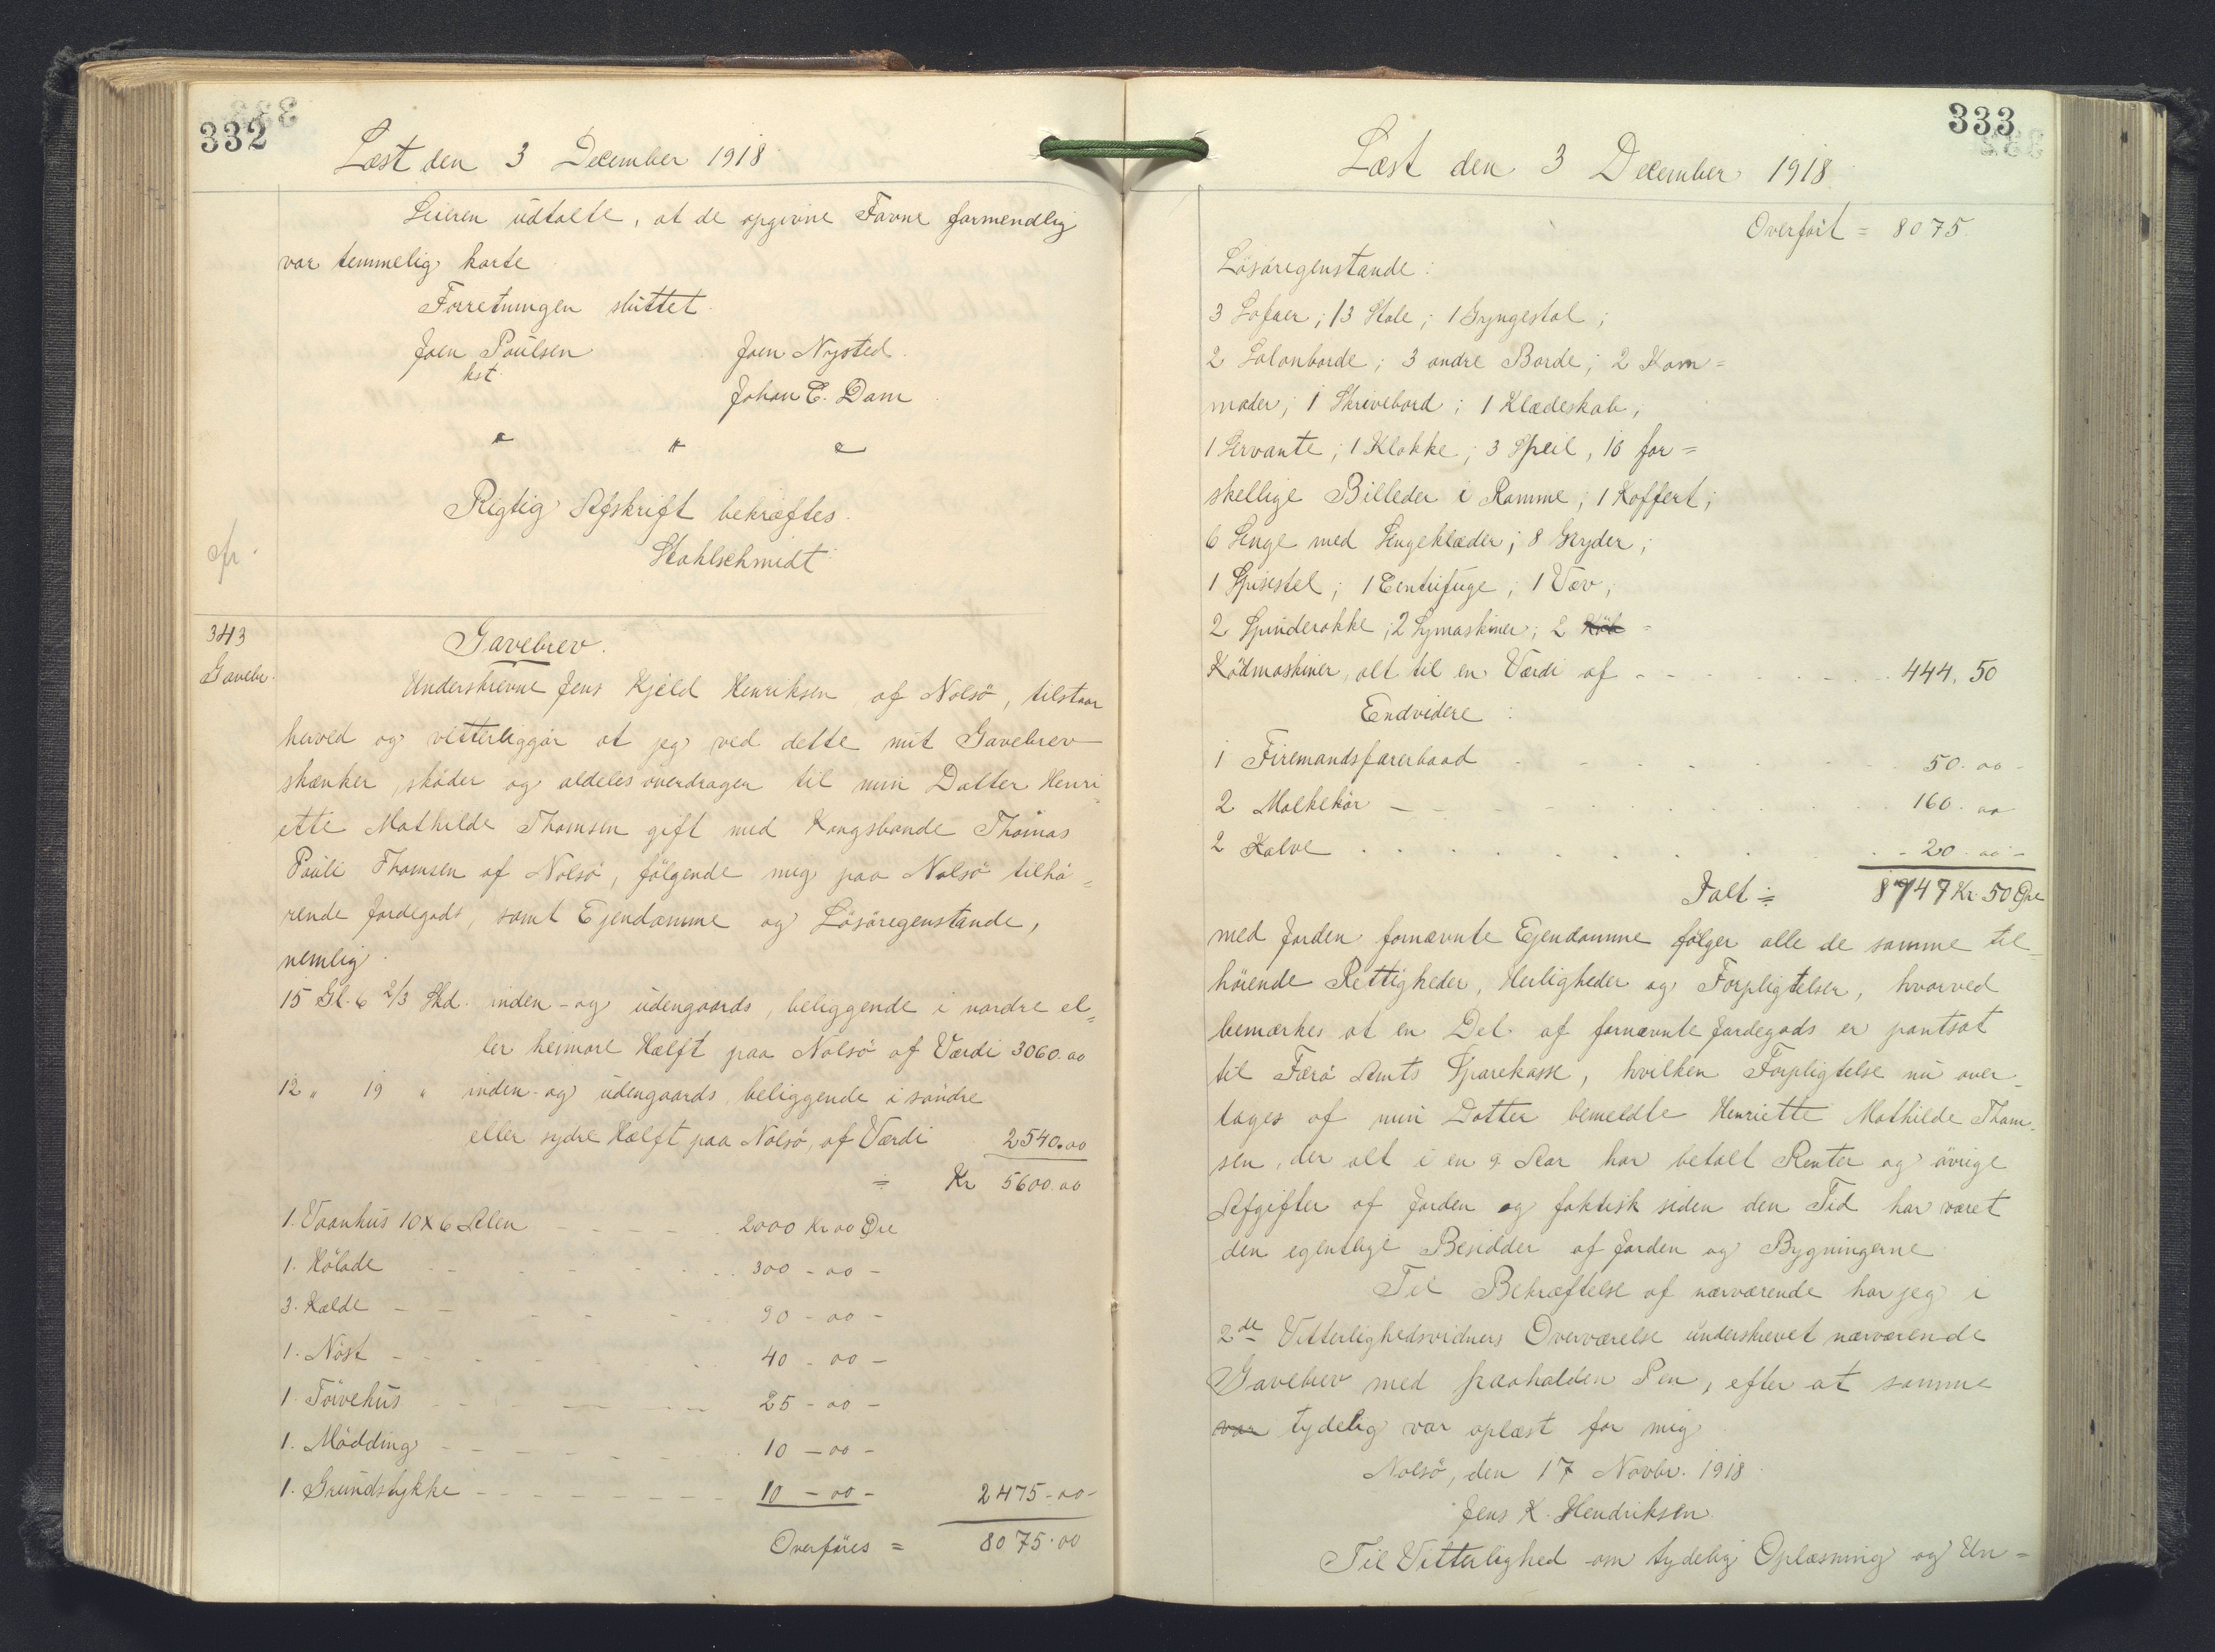 332
Læst den 3 December 1918
Leieren udtalte, at de opgivne Favne formendlig
var temmelig korte
Forretningen sluttet.
Joen Poulsen Joen Nysted.
kst. Johan E. Dam
" " "
Rigtig Afskrift bekræftes.
Stahlschmidt
cfr.
343
Gavebr.
Gavebrev.
Underskrevne Jens Kjeld Henriksen, af Nolsö, tilstaar
herved og vitterliggör at jeg ved dette mit Gavebrev
skænker, sköder og aldeles overdrager til min Datter Henri=
ette Mathilde Thomsen gift med Kongsbonde Thomas
Pauli Thomsen af Nolsö, fölgende mig paa Nolsö tilhö=
rende Jordegods, samt Ejendomme og Lösöregenstande,
nemlig.
15 Gl. 6 2/3 Skd. inden- og udengaards, beliggende i nordre el=
ler heimare Hælft paa Nolsö af Værdi 3060.00
12 " 19 " inden- og udengaards beliggende i söndre
eller sydre Hælft paa Nolsö, af Værdi 2540.00
= Kr 5600.00
1. Vaanhus 10x6 Alen - - - - 2000 Kr 00 Öre
1. Hölade - - - - - - 300 - 00 -
3. Kælde - - - - - 90 - 00 -
1. Nöst - - - - - - 40 - 00 -
1. Törvehus - - - - - 25 - 00 -
1. Mödding - - - - - - 10 - 00 -
1. Grundstykke - - - - - - - 10 - 00 - 2475-00-
Overföres = 8075.00
333
Læst den 3 December 1918
Overfört = 8075.
Lösöregenstande:
3 Sofaer; 13 Stole; 1 Gyngestol;
2 Salonborde; 3 andre Borde; 2 Kom=
moder; 1 Skrivebord; 1 Klædeskab;
1 Servante; 1 Klokke; 3 Speil, 16 for=
skellige Billeder i Ramme; 1 Koffert;
6 Senge med Sengeklæder; 8 Gryder;
1 Spisestel; 1 Centrifuge; 1 Væv;
2 Spinderokke; 2 Symaskiner; 2 Köb =
Ködmaskiner, alt til en Værdi af - - - - - - 444, 50
Endvidere:
1 Firemandsfærerbaad - - - - - - 50.00-
2 Malkekör - - - - - - - 160.00
2 Kalve . . . . . . . . - 20.00-
Ialt = 8747 Kr. 50 Öre
med Jorden fornævnte Ejendomme fölger alle de samme til=
hörende Rettigheder, Herligheder og Forpligtelser, hvorved
bemærkes at en Del af fornævnte Jordegods er pantsat
til Færö Amts Sparekasse, hvilken Forpligtelse nu over=
tages af min Datter bemeldte Henriette Mathilde Thom=
sen, der alt i en 9 Aar har betalt Renter og övrige
Afgifter af Jorden og faktisk siden den Tid har været
den egentlige Besidder af Jorden og Bygningerne
Til Bekræftelse af nærværende har jeg i
2de Vitterlighedsvidners Overværelse underskrevet nærværende
Gavebrev med paaholden Pen, efter at samme
var tydelig var oplæst for mig.
Nolsö, den 17 Novbr. 1918
Jens K. Hendriksen.
Til Vitterlighed om tydelig Oplæsning og Un=